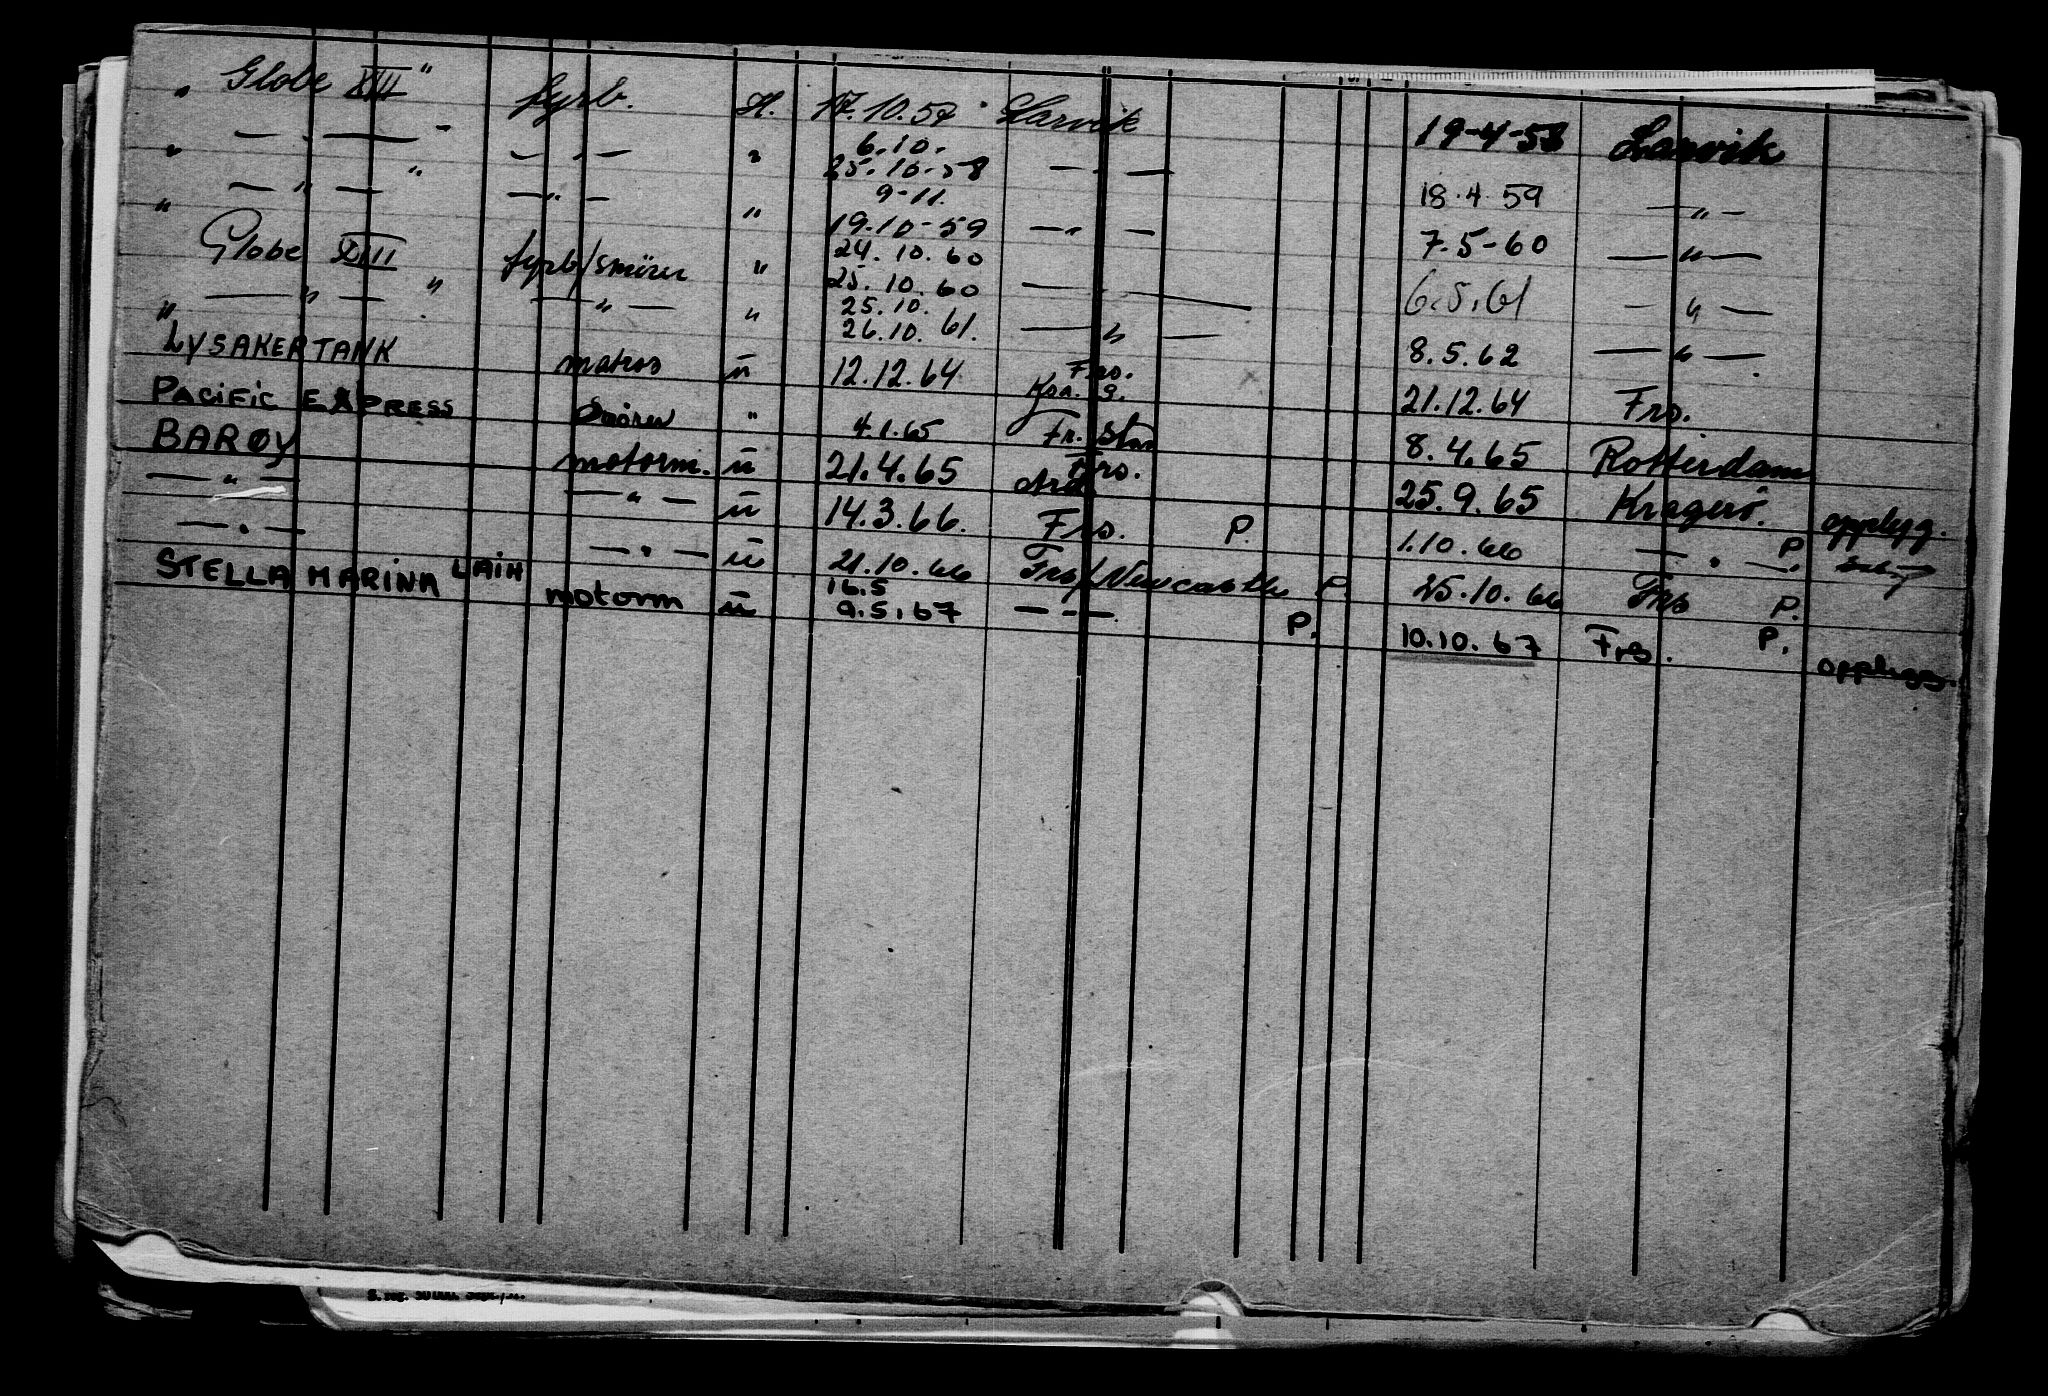 " Globe XIII " fyrb. H. 17.10.57 Larvik 19-4-58 Larvik
" — " — " — " — " 6.10. 25.10-58 — " — 18.4.59 — " —
" — " — " — " — " 9-11. 19.10-59 — " — 7.5-60 — " —
Globe XIII fyrb/smører " 24.10.60 25.10.60 — " — 6.5.61 — " —
" — " — " — " — " 25.10. 26.10.61. — " — 8.5.62 — " —
LYSAKER TANK matros " 12.12.64 Fro. 21.12.64 Fro.
PACIFIC EXPRESS Smører " 4.1.65 Fr. Stad 8.4.65 Rotterdam
BARØY motorm. " 21.4.65 Fro. 25.9.65 Kragerø. opplegg.
— " — — " — " 14.3.66. Fro. P. 1.10.66 — " — P.
— " — — " — " 21.10.66 Fro/Newcastle P. 25.10.66 Fro P.
STELLA MARINA LAIH motorm " 16.5 9.5.67 — " — P. 10.10.67 Fro. P. opplegg.